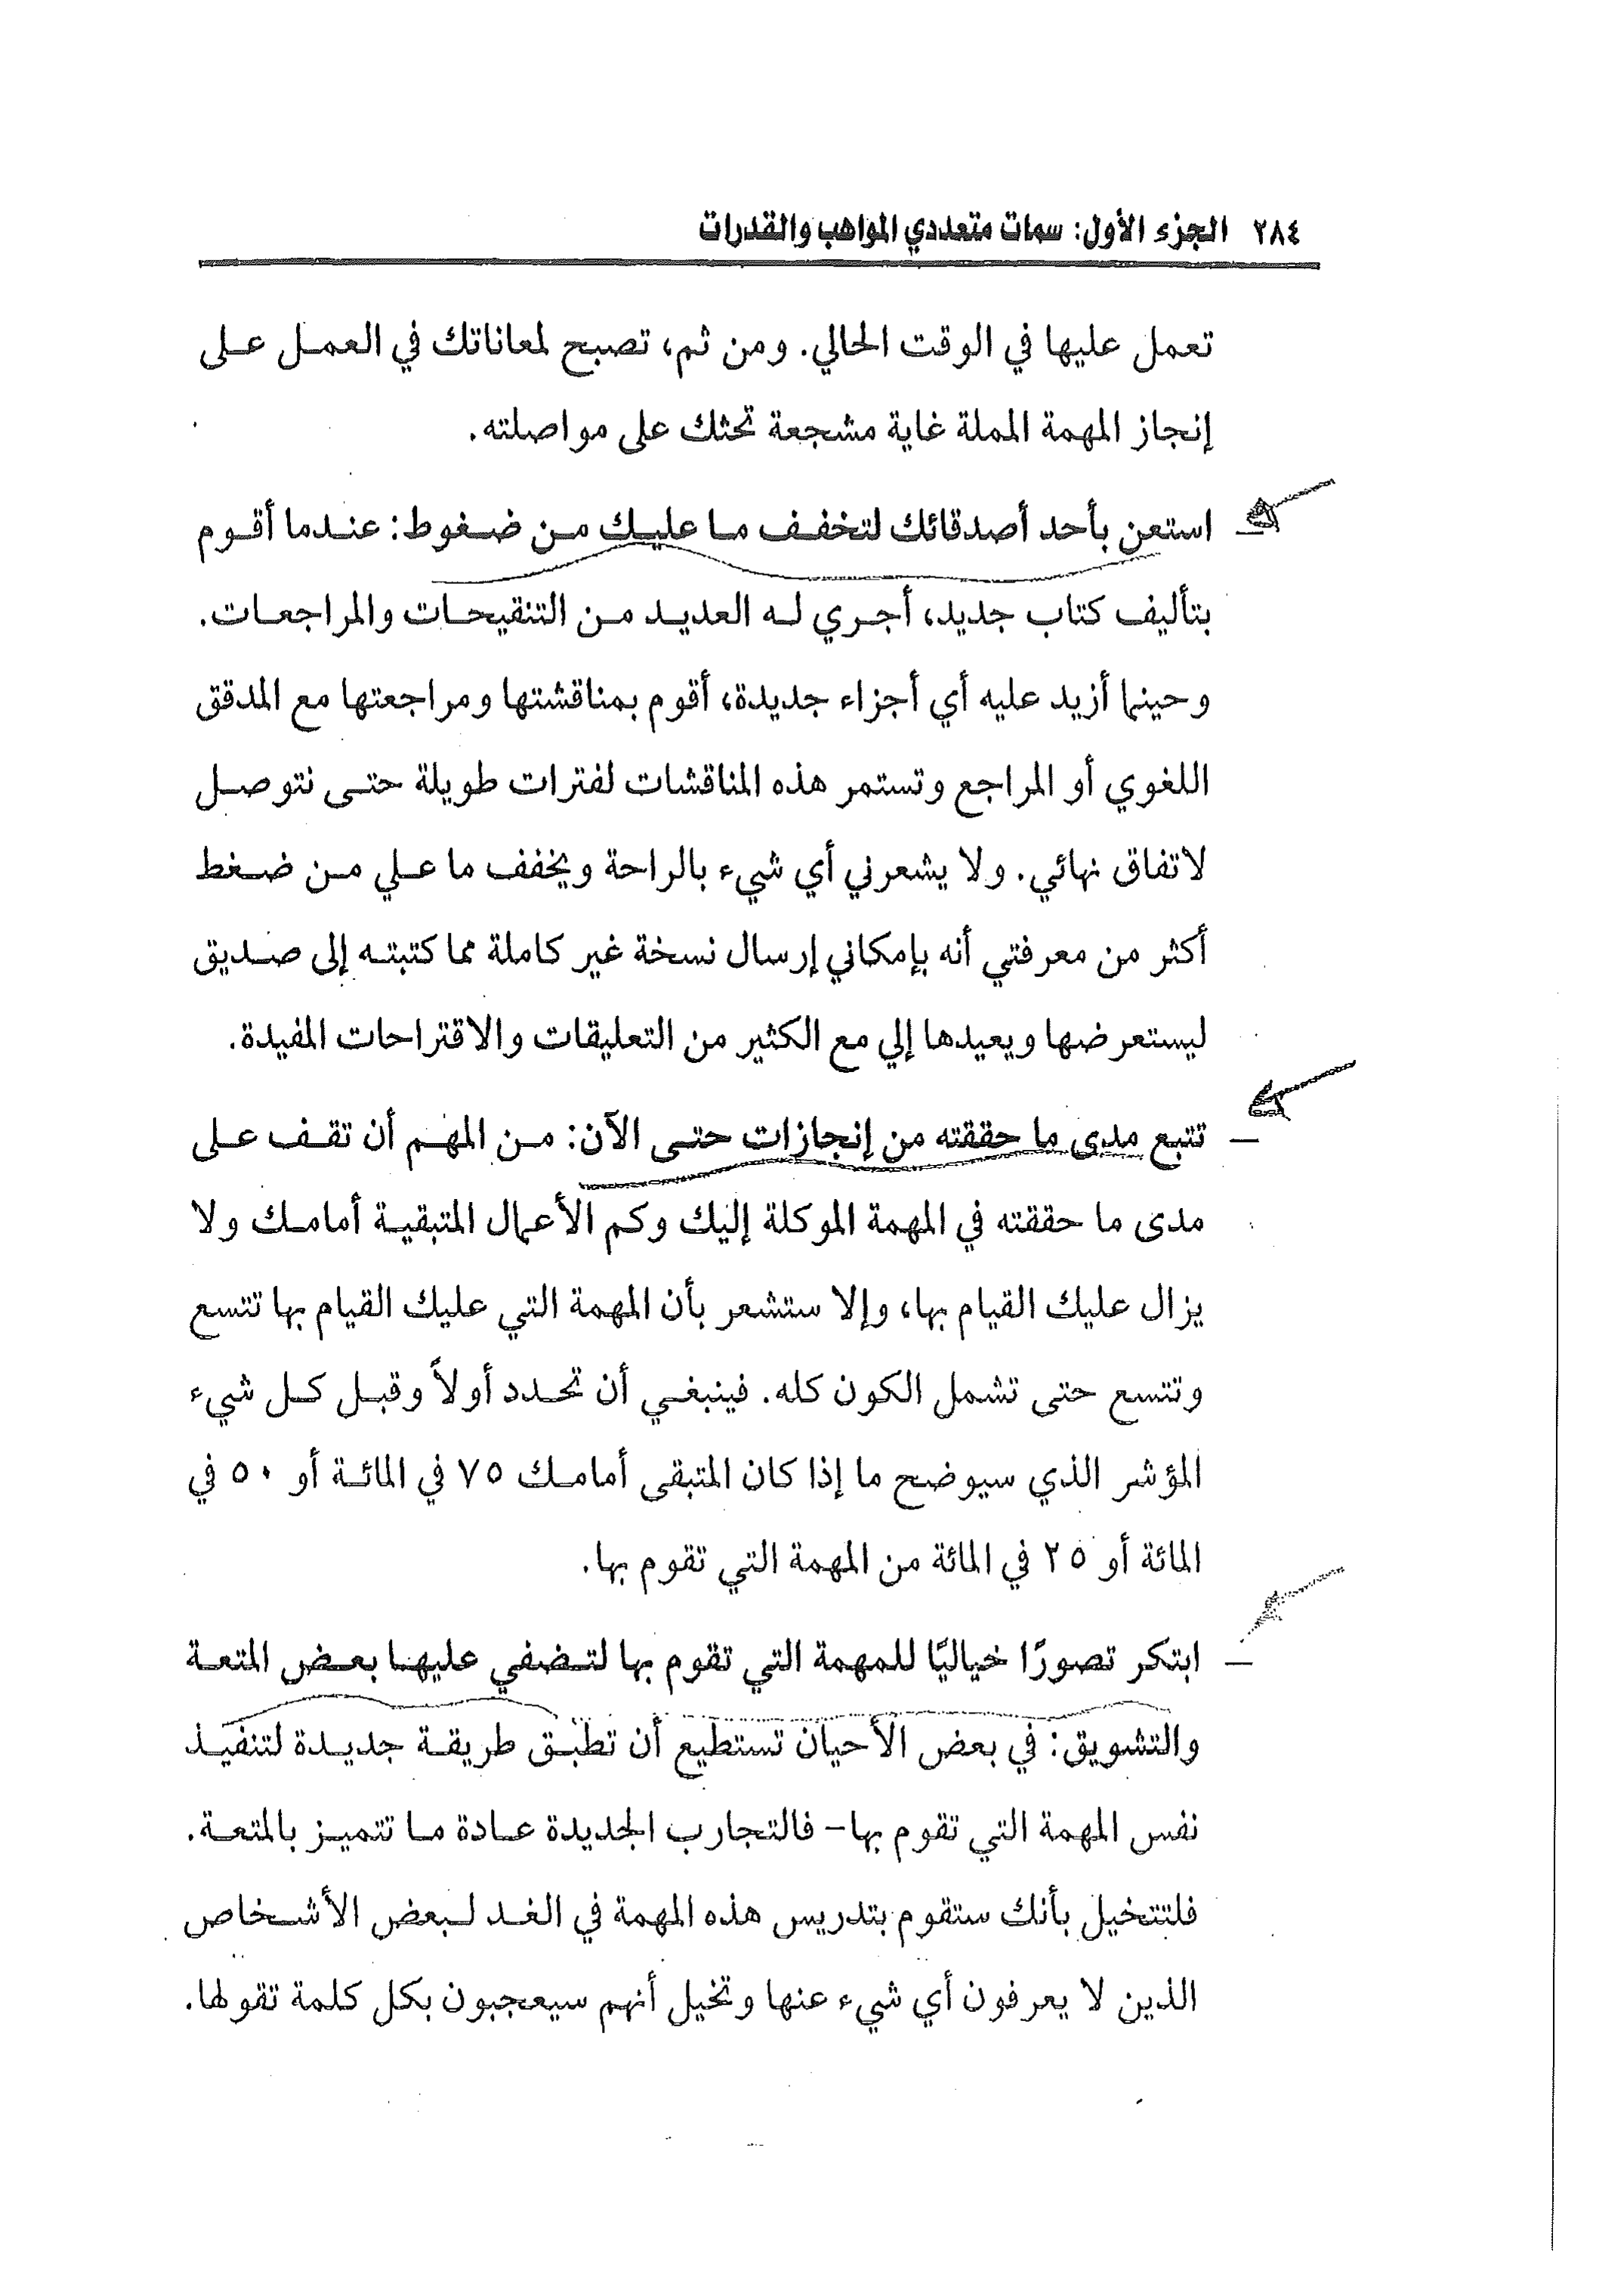 ٢٨٤ الجزء الأول: سمات متعددي المواهب والقدرات
تعمل عليها في الوقت الحالي. ومن ثم، تصبح لمعاناتك في العمل على
إنجاز المهمة المملة غاية مشجعة تحثك على مواصلته.
– استعن بأحد أصدقائك لتخفف ما عليك من ضغوط: عندما أقوم
بتأليف كتاب جديد، أجري له العديد من التنقيحات والمراجعات.
وحينما أزيد عليه أي أجزاء جديدة، أقوم بمناقشتها ومراجعتها مع المدقق
اللغوي أو المراجع وتستمر هذه المناقشات لفترات طويلة حتى نتوصل
لاتفاق نهائي. ولا يشعرني أي شيء بالراحة ويخفف ما علي من ضغط
أكثر من معرفتي أنه بإمكاني إرسال نسخة غير كاملة مما كتبته إلى صديق
ليستعرضها ويعيدها إلي مع الكثير من التعليقات والاقتراحات المفيدة.
– تتبع مدى ما حققته من إنجازات حتى الآن: من المهم أن تقف على
مدى ما حققته في المهمة الموكلة إليك وكم الأعمال المتبقية أمامك ولا
يزال عليك القيام بها، وإلا ستشعر بأن المهمة التي عليك القيام بها تتسع
وتتسع حتى تشمل الكون كله. فينبغي أن تحدد أولاً وقبل كل شيء
المؤشر الذي سيوضح ما إذا كان المتبقى أمامك ٧٥ في المائة أو ٥٠ في
المائة أو ٢٥ في المائة من المهمة التي تقوم بها.
– ابتكر تصورًا خياليًا للمهمة التي تقوم بها لتضفي عليها بعض المتعة
والتشويق: في بعض الأحيان تستطيع أن تطبق طريقة جديدة لتنفيذ
نفس المهمة التي تقوم بها– فالتجارب الجديدة عادة ما تتميز بالمتعة.
فلتتخيل بأنك ستقوم بتدريس هذه المهمة في الغد لبعض الأشخاص
الذين لا يعرفون أي شيء عنها وتخيل أنهم سيعجبون بكل كلمة تقولها.